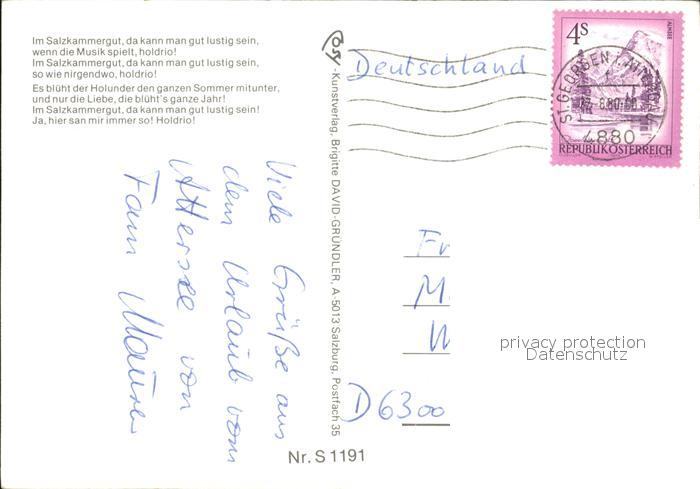 Im Salzkammergut, da kann man gut lustig sein,
wenn die Musik spielt, holdrio!
Im Salzkammergut, da kann man gut lustig sein,
so wie nirgendwo, holdrio!
Es blüht der Holunder den ganzen Sommer mitunter,
und nur die Liebe, die blüht's ganze Jahr!
Im Salzkammergut, da kann man gut lustig sein!
Ja, hier san mir immer so! Holdrio!
Viele Grüße aus
dem Urlaub vom
Attersee von
Fam Maurer
-Kunstverlag, Brigitte DAVID-GRÜNDLER, A-5013 Salzburg, Postfach 35
Nr. S 1191
Deutschland
4S
ALMSEE
ST. GEORGEN
4880
REPUBLIK ÖSTERREICH
Fr
M.
W
D 6300
privacy protection
Datenschutz